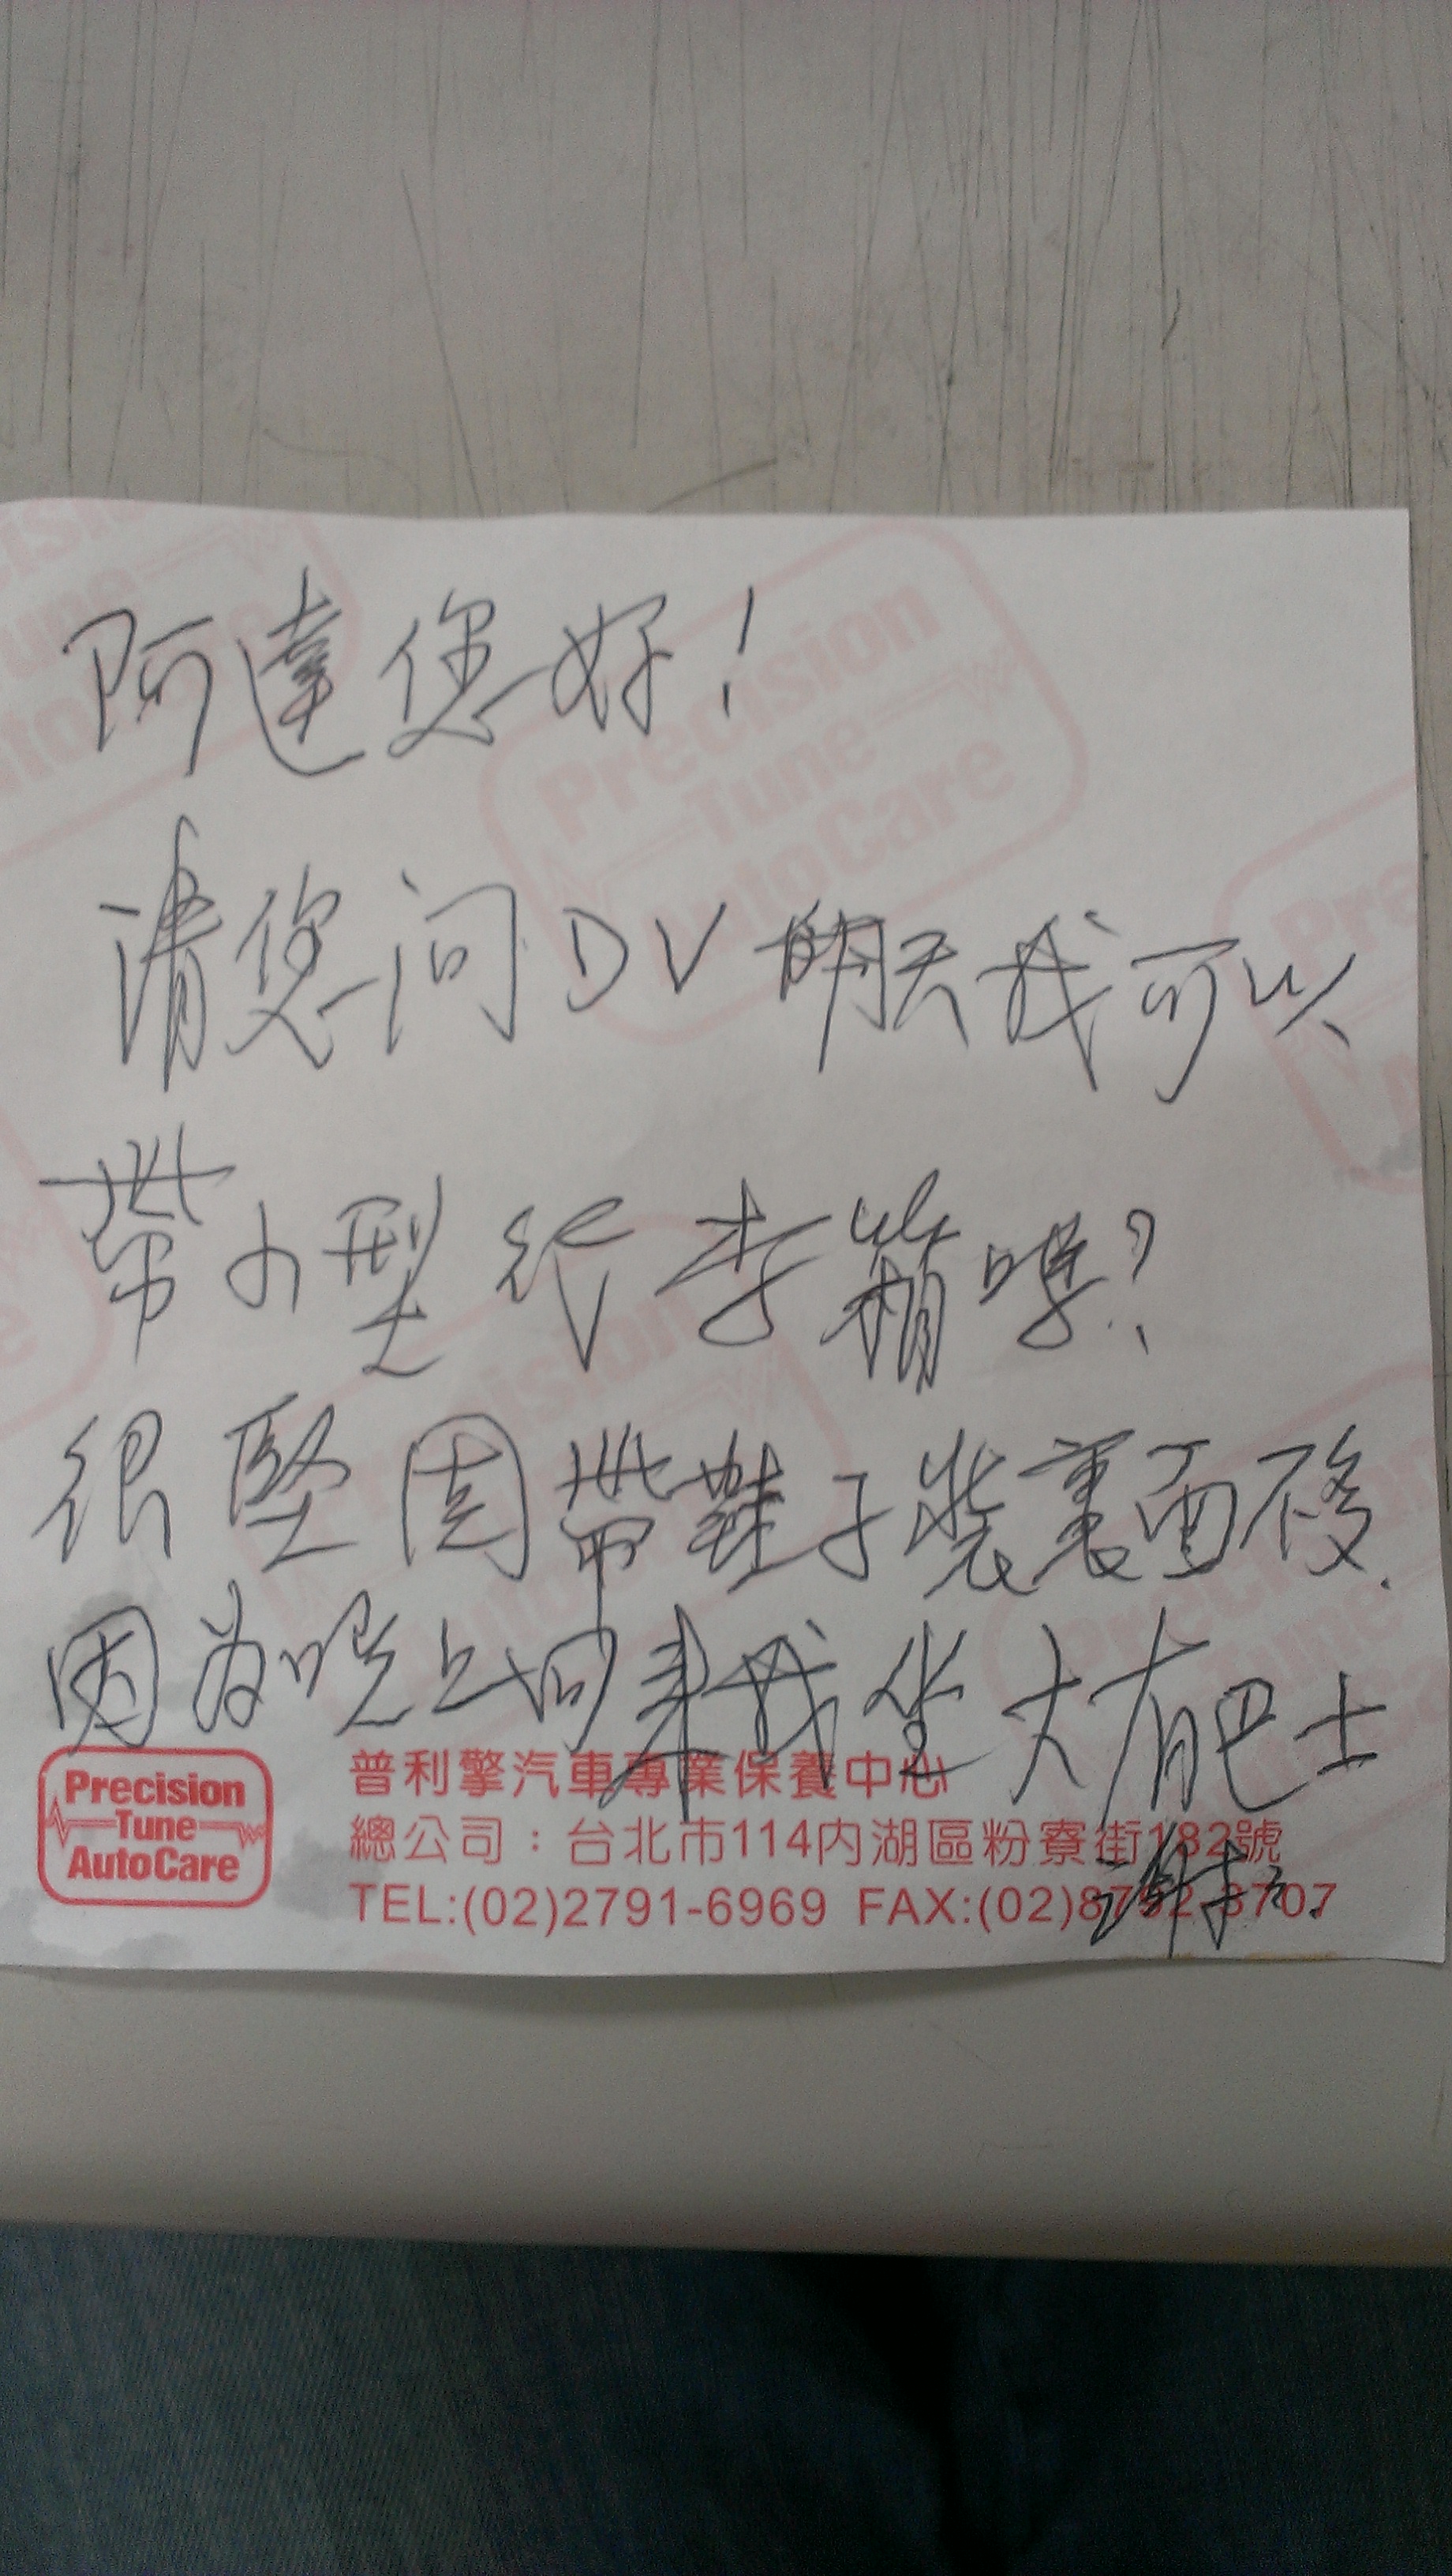 阿達您好!
請您問DV明天我可以
帶小型行李箱嗎?
很堅固帶鞋子裝裏面
因為晚上回來我坐大爬士
謝謝.
Precision
Tune
AutoCare
普利擎汽車專業保養中心
總公司：台北市114內湖區粉寮街182號
TEL:(02)2791-6969 FAX:(02)8792-8707
Precision
Tune
AutoCare